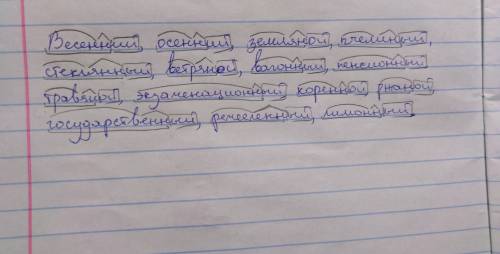 Весенний, осенний, земляной, пчелиный,
стеклянный, ветряной, вагонный, пенсионный
травяной, экзаменационный коренной ржаной
государственный, ремесленный, лимонный